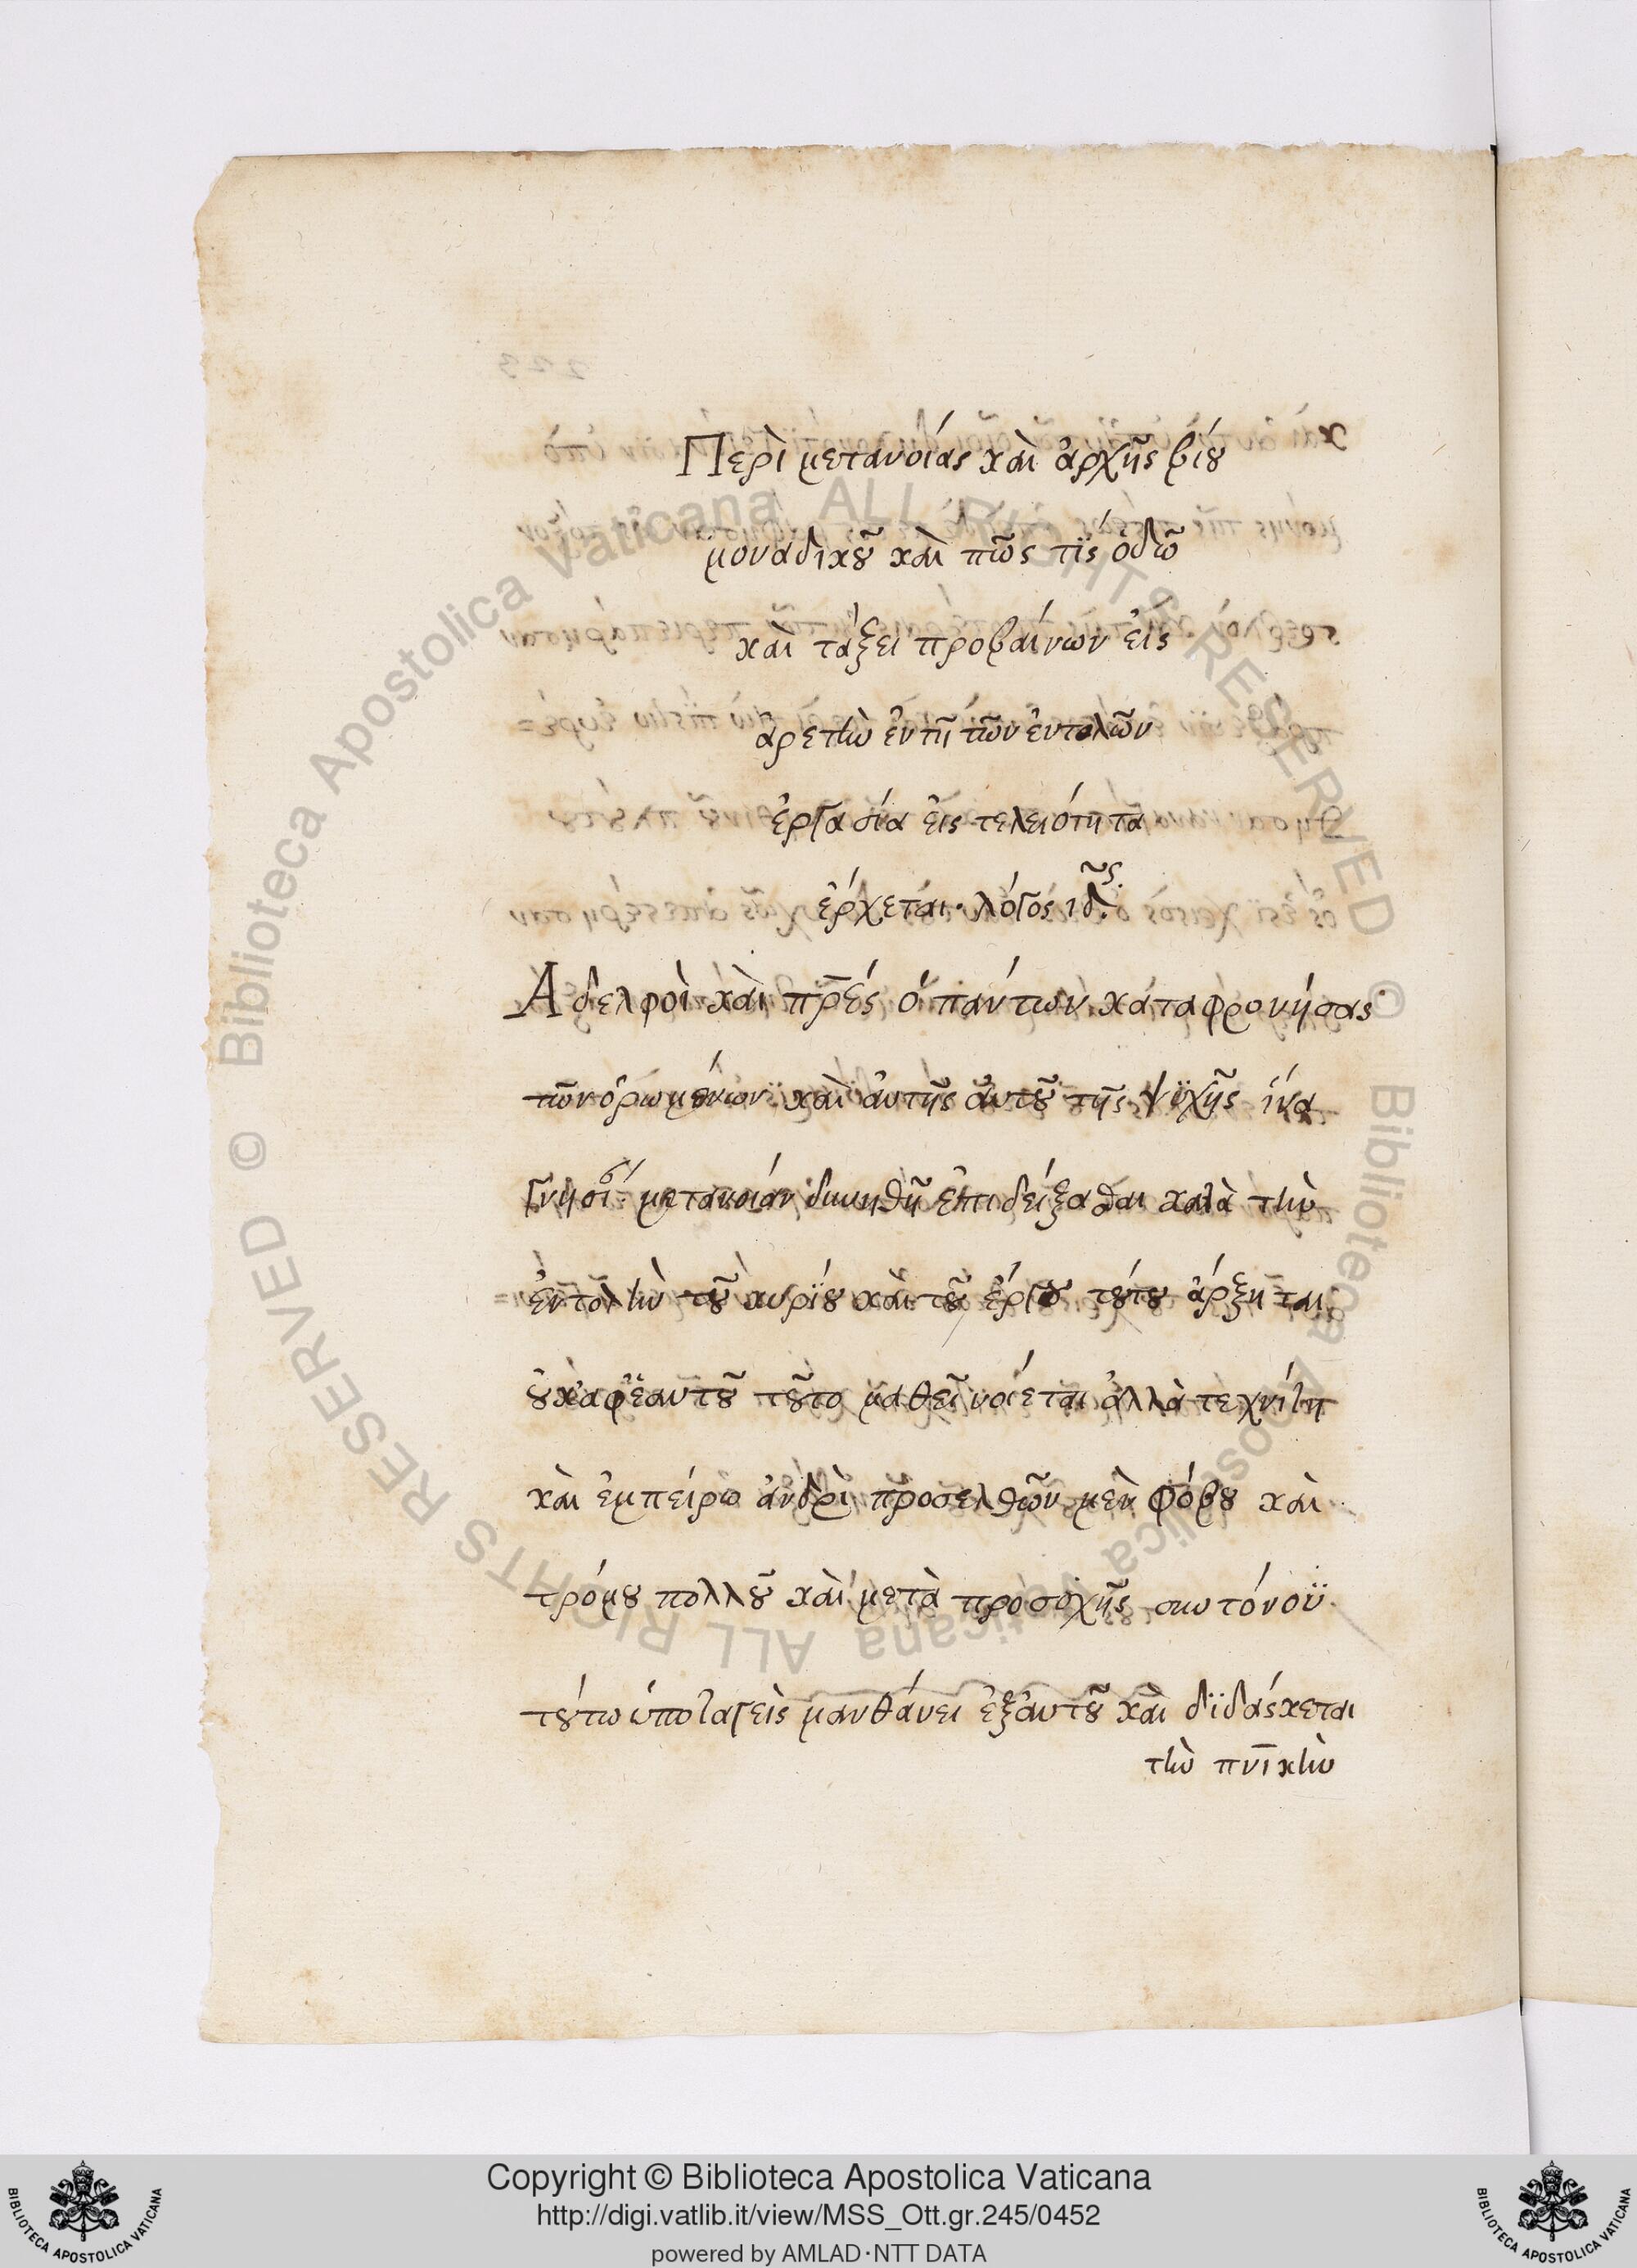 Περὶ μετανοίας καὶ ἀρχῆς βίου
μοναδικοῦ καὶ πῶς τϊς ὁδῶ
καὶ τάξει προβαίνων εἰς
ἀρετὴν ἐν τῆ τῶν ἐντολῶν
ἐργασία εἰς τελειότητα
ἔρχεται· λόγος ιδ̃ος.
Ἀδελφοὶ καὶ πρ̅ες ὁ πάντων καταφρονήσας
τῶν ὁρωμένων καὶ ἀυτῆς ἀυτοῦ τῆς ψϋχῆς ἵνα
μετανοιάν δυνηθῆ ἐπιδείξασθαι κατὰ τὴν
ἐντολὴν τοῦ κυρίου καὶ τοῦ ἔργου τούτου ἄρξηται
οὐκ ἀφ ἑαυτοῦ τοῦτο μαθεῖν οἴεται ἀλλὰ τεχνίτη
καὶ ἐμπείρω ἀνδρὶ προσελθῶν μὲν φόβου καὶ
τρόμου πολλοῦ καὶ μετὰ προσοχῆς συντόνοϋ
τούτω ὑποταγεὶς μανθάνει ἐξ ἀυτοῦ καὶ δϊδάσκεται
τὴν πνι̅κὴν
Copyright © Biblioteca Apostolica Vaticana
http://digi.vatlib.it/view/MSS_Ott.gr.245/0452
powered by AMLAD·NTT DATA
BIBLIOTECA APOSTOLICA VATICANA
BIBLIOTECA APOSTOLICA VATICANA
© Biblioteca Apostolica Vaticana ALL RIGHTS RESERVED © Biblioteca Apostolica Vaticana ALL RIGHTS RESERVED